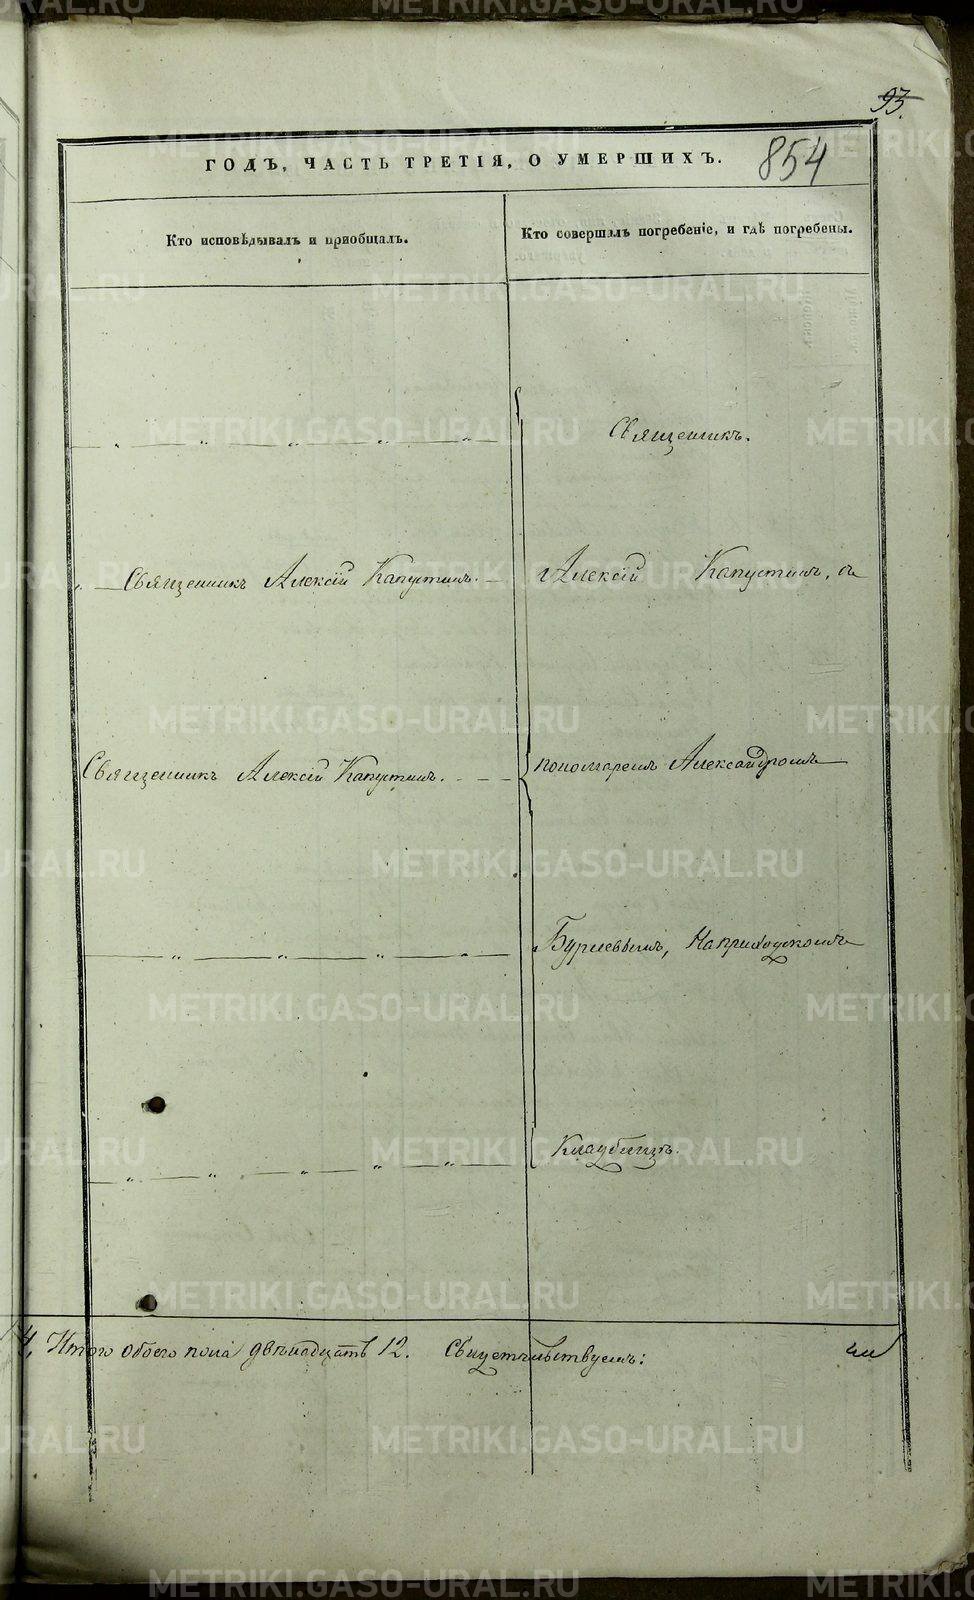 93.
ГОДЪ, ЧАСТЬ ТРЕТІЯ, О УМЕРШИХЪ.
854
Кто исповѣдывалъ и пріобщалъ.
Кто совершалъ погребеніе, и гдѣ погребены.
Священникъ.
Священникъ Алексій Капустинъ.
Алексій Капустинъ, съ
Священникъ Алексій Капустинъ.
пономаремъ Александромъ
Бурлевымъ, На приходскомъ
Кладбищѣ.
4, Итого обоего пола двѣнадцать 12. Свидѣтельствуемъ:
METRIKI.GASO-URAL.RU